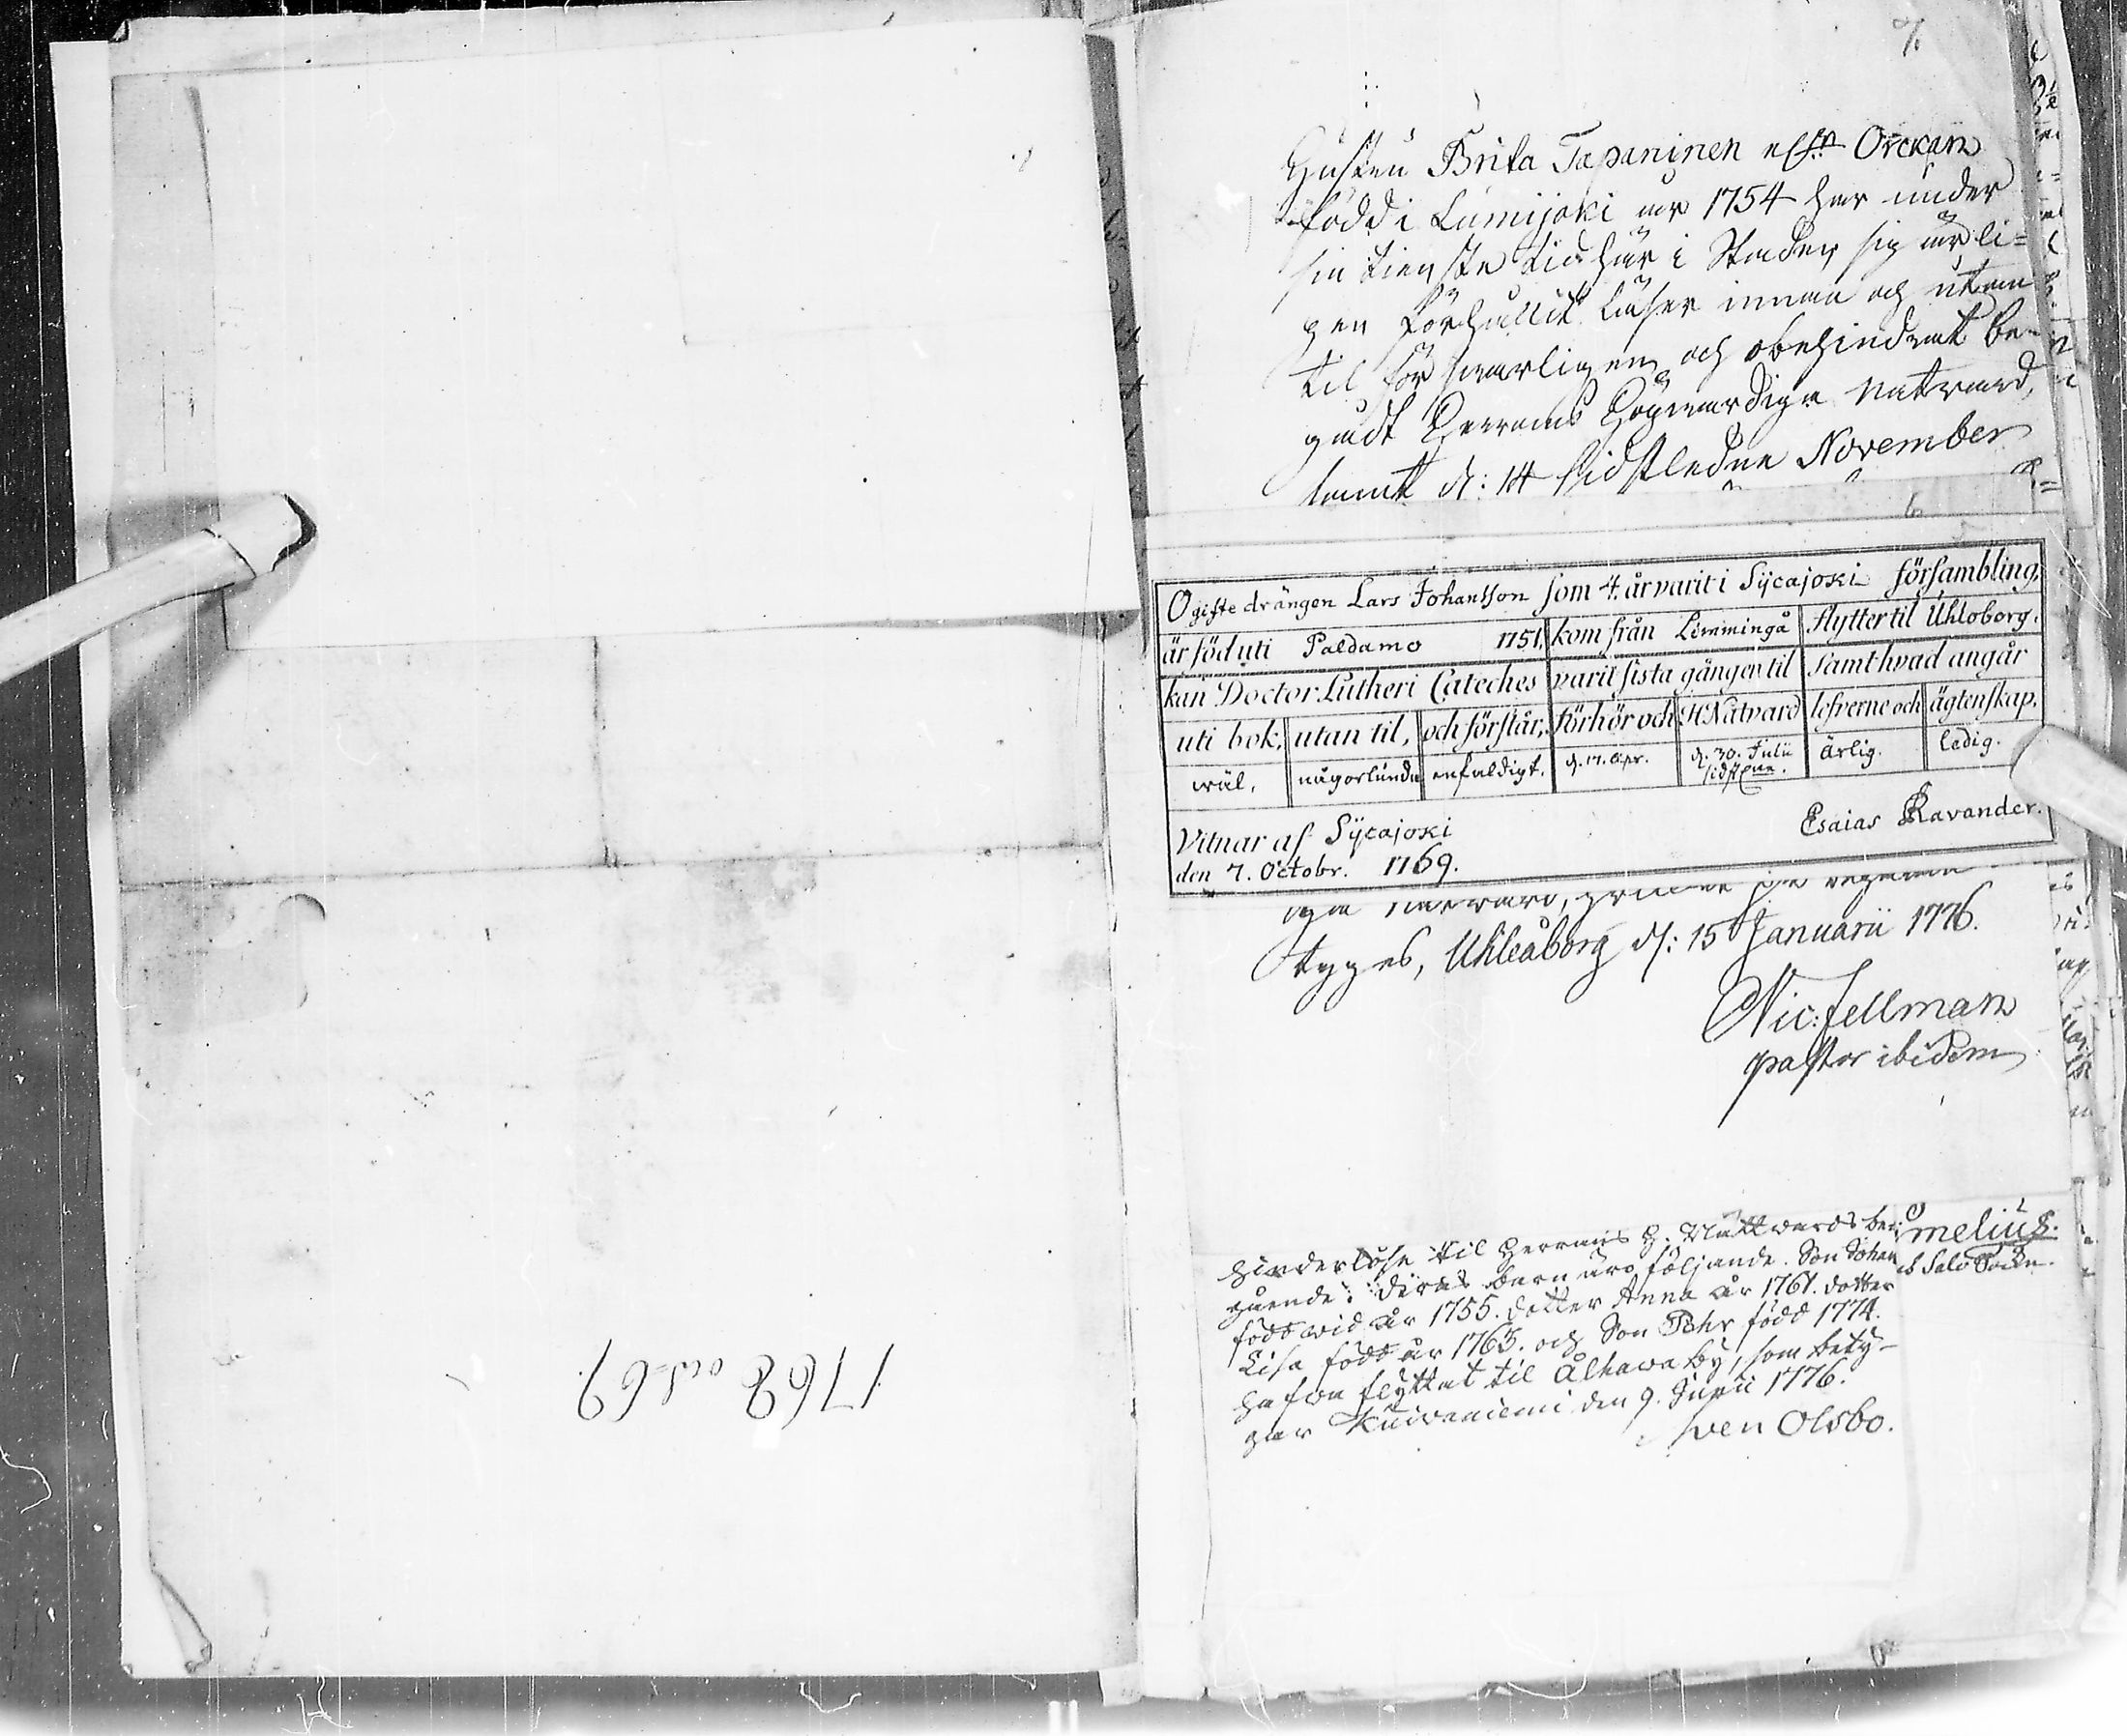 Hustru Brita Tapaninen Orckan
född i Lumijoki år 1754 har under
sin tienste tid här i Staden sig ärli=
gen förhållit läser innan och utan
til försvarligen, och obehindrat be-
gådt Herrans Högwärdiga Nattward,
samt d: 14 sidstledne November
Ogifte drängen Lars Johansson som 4. år varit i Sijcajoki försambling,
är föd uti Paldamo 1751, kom från Limmingå flytter til Uhloborg.
kan Doctor Lutheri Cateches varit sista gången til samt hvad angår
uti bok, utan til, och förstår, förhör och H. Natvard lefverne och ägtenskap.
wäl, någorlunda enfaldigt. d. 17. Apr. d. 30. Julii sidstl. ärlig. ledig.
Vitnar af Sijcajoki Esaias Ravander.
den 7. Octobr. 1769.
tyges, Uhleåborg d: 15 Januarii 1776.
Nic: Fellman
pastor ibidem
hinderlöse til Herrans H. Nattwards be-
gående: deras barn äro följande. Son Johan
född wid år 1755. dotter Anna år 1761. dotter
Lisa född år 1763. och Son Pehr född 1774.
hafwa flyttat til Alhawa by, som bety-
gar Kuivaniemi den 9. Junii 1776.
Sven Olsbo.
melius.
Salo Sockn.
1768 och 69.